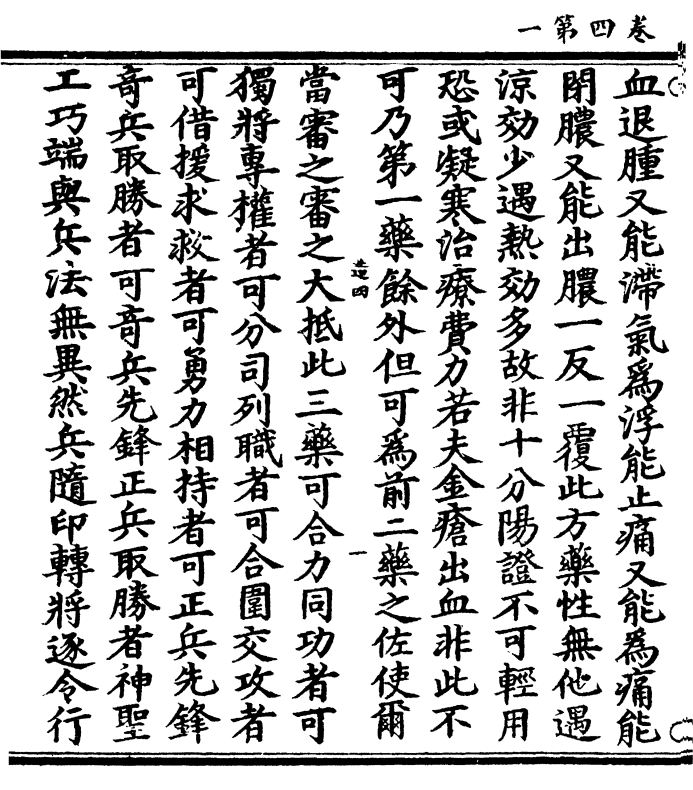 卷四第一
血退腫又能滯氣爲浮能止痛又能為痛能
閉膿又能出膿一反一覆此方藥性無他遇
涼効少遇熱効多故非十分陽證不可輕用
恐或凝寒治療費力若夫金瘡出血非此不
可乃第一藥餘外但可爲前二藥之佐使爾
當審之審之大抵此三藥可合力同功者可
獨將專權者可分司列職者可合圍交攻者
可借援求救者可勇力相持者可正兵先鋒
奇兵取勝者可奇兵先鋒正兵取勝者神聖
工巧端與兵法無異然兵隨印轉將逐令行